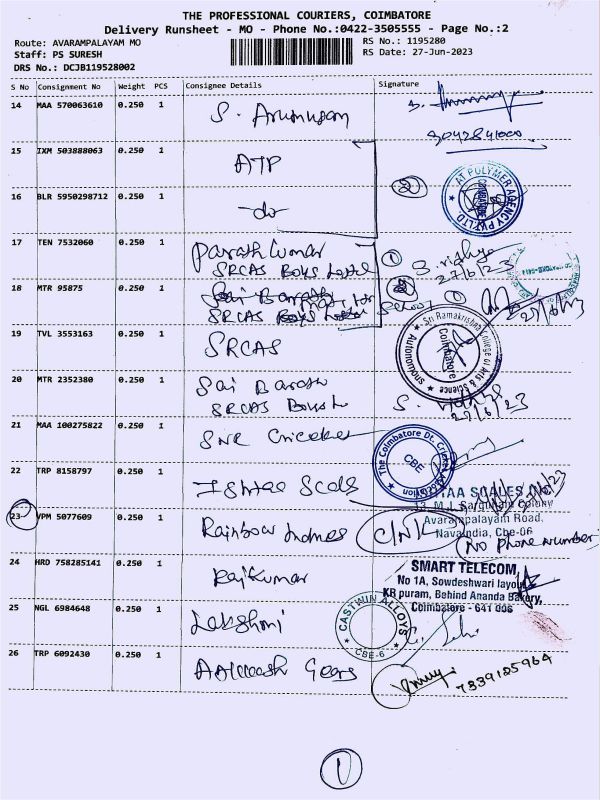 THE PROFESSIONAL COURIERS, COIMBATORE
Delivery Runsheet - MO - Phone No.:0422-3505555 - Page No.:2
Route: AVARAMPALAYAM MO
RS No.: 1195280
Staff: PS SURESH
RS Date: 27-Jun-2023
DRS No.: DCJB119528002
S No Consignment No Weight PCS Consignee Details Signature
14 MAA 570063610 0.250 1 S. Arumugam
15 IXM 503888063 0.250 1 ATP
2
AT POLYMER AGENCY PVT LTD.
COIMBATORE
16 BLR 5950298712 0.250 1 -do-
17 TEN 7532060 0.250 1 Parath Kumar
SRCAS Boys Hostel
1
27/6/23
18 MTR 95875 0.250 1
SRCAS Boys Hostel
Sri Ramakrishna College of Arts & Science
Autonomous
Coimbatore
19 TVL 3553163 0.250 1 SRCAS
20 MTR 2352380 0.250 1 Sai Barath
SRCAS
27/6/23
21 MAA 100275822 0.250 1 SNR Cricket
The Coimbatore Dt. Cricket Association
CBE
22 TRP 8158797 0.250 1 Ishtaa Scals
SCALES
Avarampalayam Road,
Navaindia, Cbe-06
23 VPM 5077609 0.250 1 Rainbow Indnes
C/NK
(No phone number)
24 HRD 758285141 0.250 1 Rajkumar
SMART TELECOM,
No 1A, Sowdeshwari layout
KR puram, Behind Ananda Bakery,
Coimbatore - 641 006
25 NGL 6984648 0.250 1 Lakshmi
CASTWIN ALLOYS
CBE-6
26 TRP 6092430 0.250 1 Gears
7339125964
1